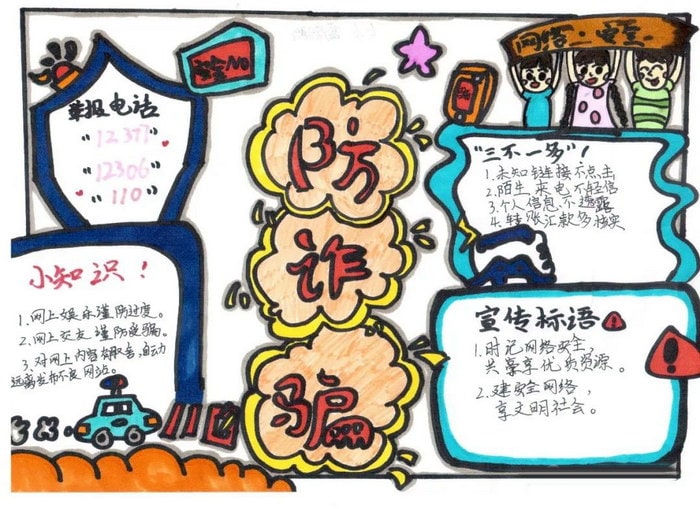 举报电话
"12377"
"12306"
"110"
网络·安全
防
诈
骗
"三不一多"!
1.未知链接不点击
2.陌生来电不轻信
3.个人信息不透露
4.转账汇款多核实
小知识!
1.网上娱乐谨防过度。
2.网上交友谨防受骗。
3.对网上内容有取舍,自动
远离发布不良网站。
宣传标语
1.时记网络安全,
共享享优质资源。
2.建安全网络,
享文明社会。